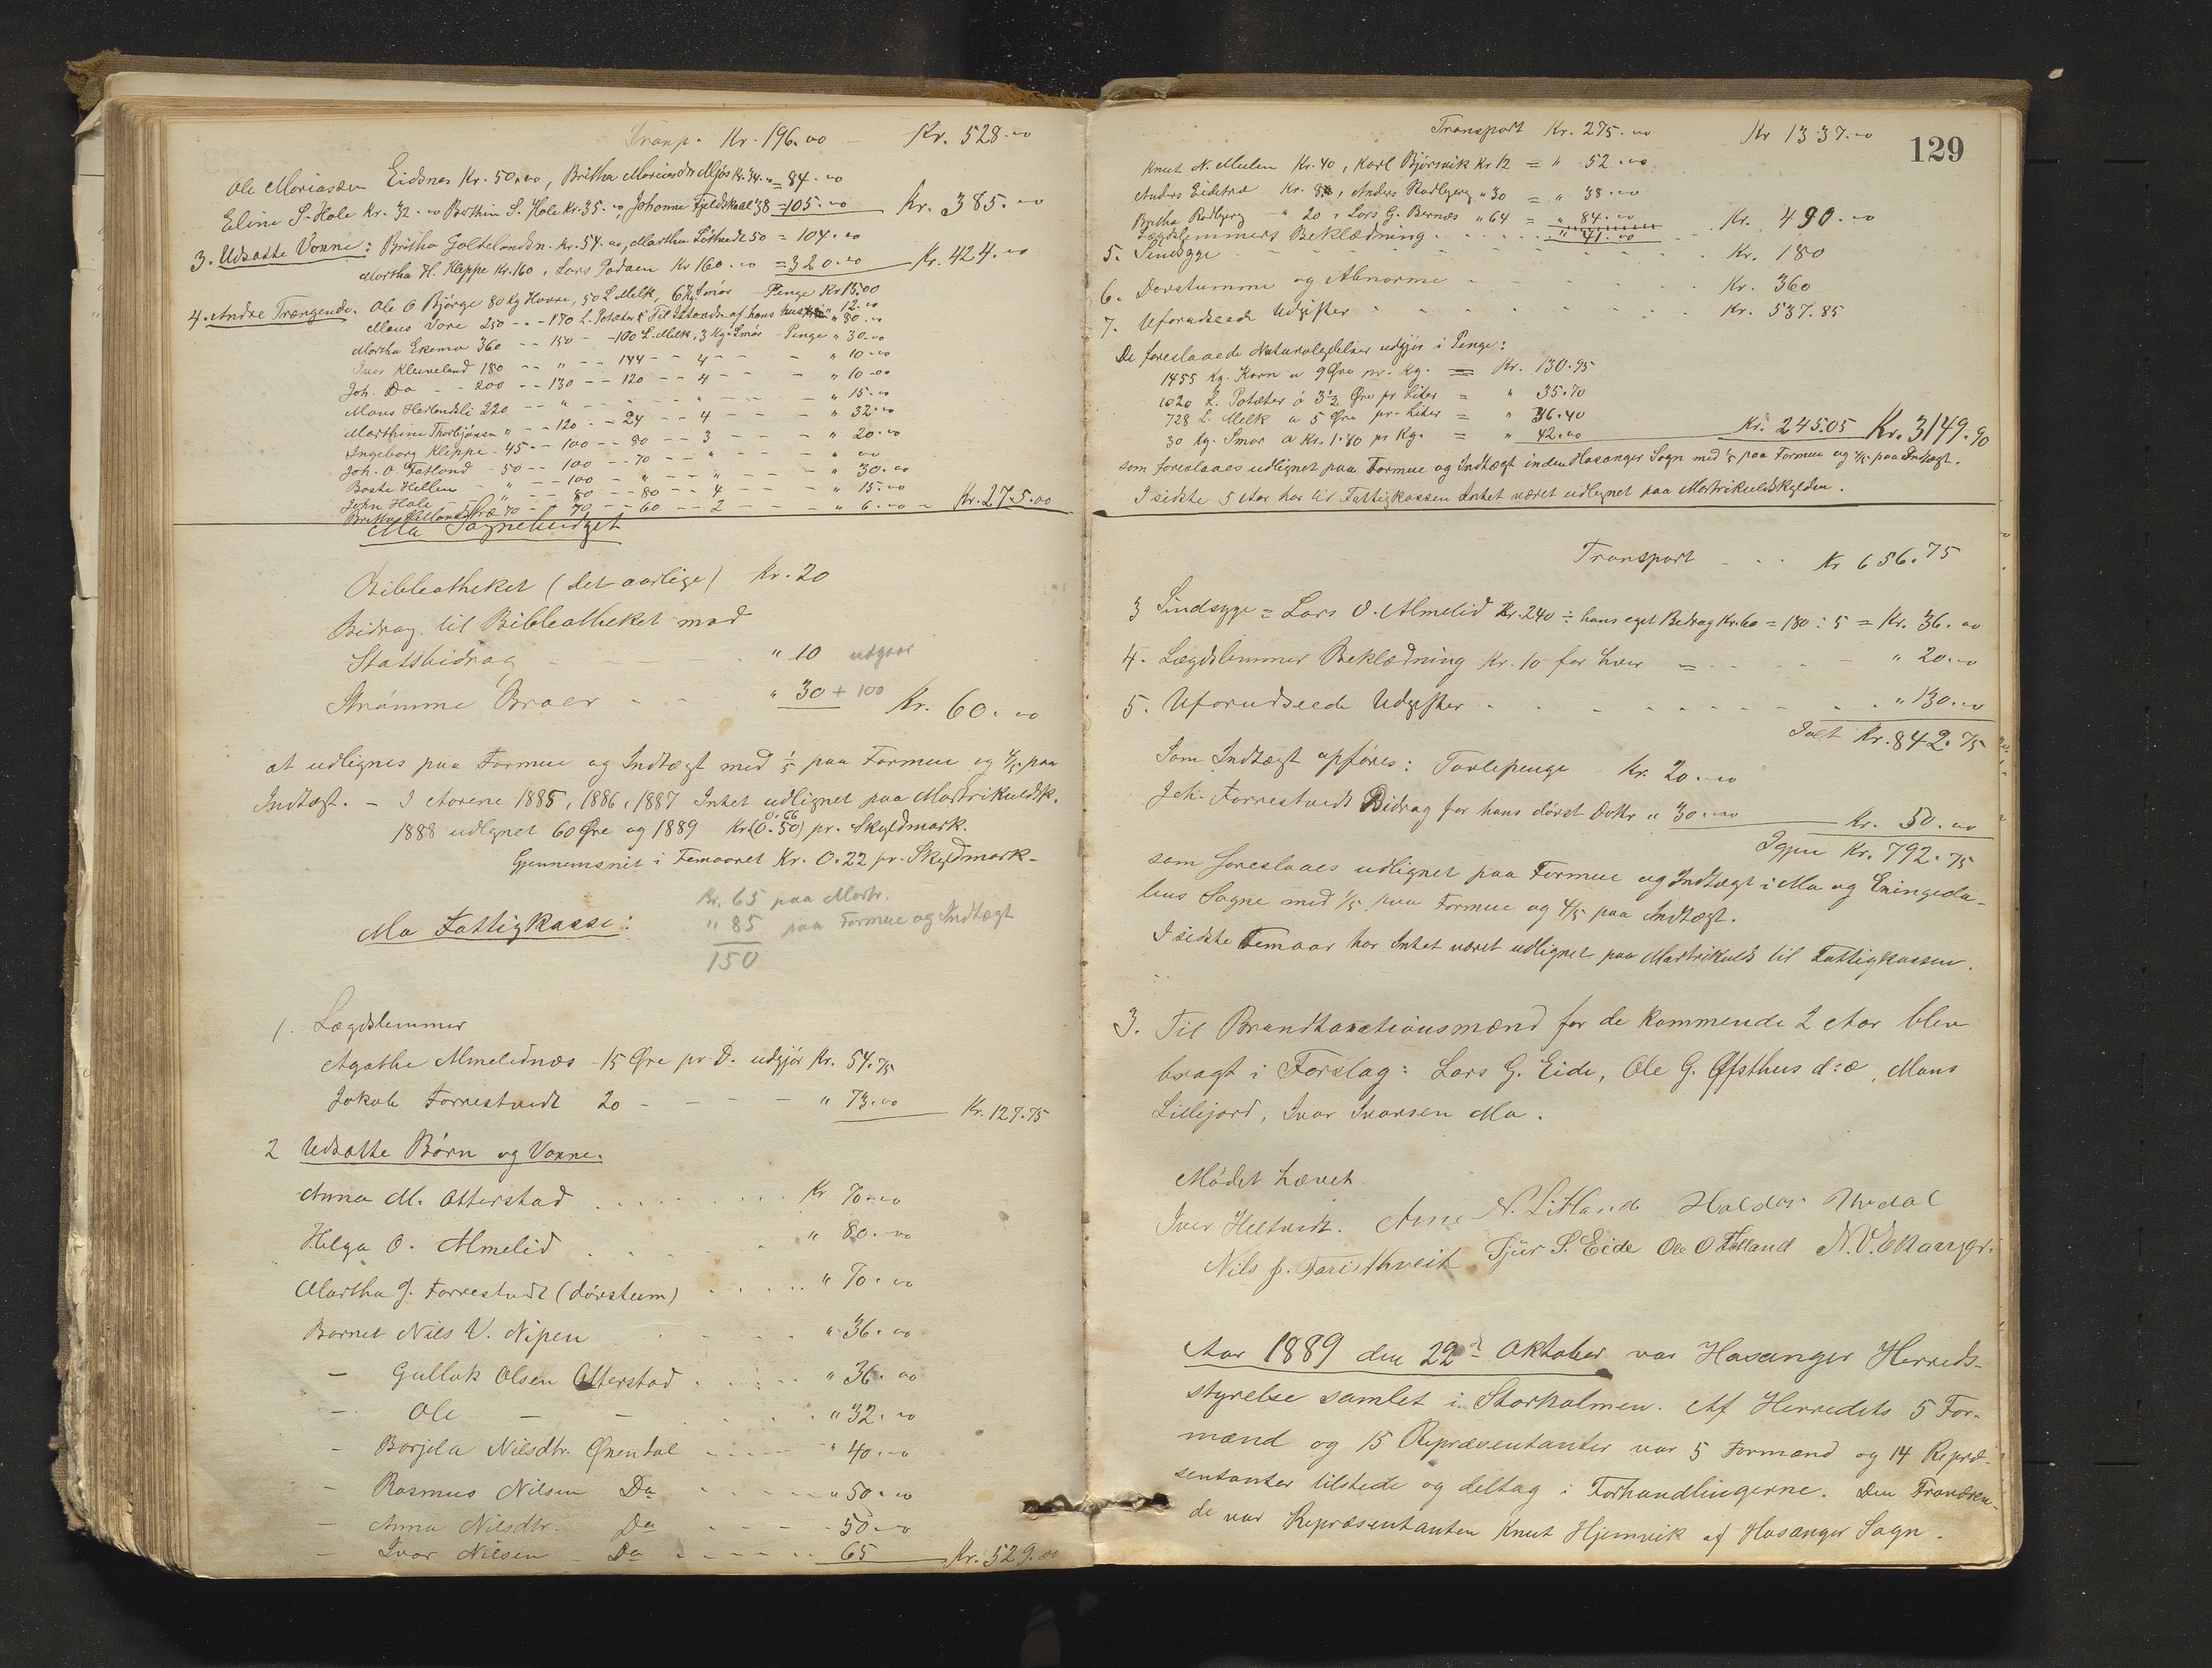 Transp. Kr. 196.00 — Kr. 528.00
Ole Moriassen Eidsnes Kr. 50.00, Britha Moriasdtr Mjøs Kr. 34.00 = 84.00
Eline S. Hole Kr. 32.00 Bothin S. Hole Kr. 35.00, Johanne Fjeldskaal 38 = 105.00 Kr. 385.00
3. Udsatte Voxne: Britha Galtelandsn. Kr. 54.00, Martha Löttvedt 50 = 104.00
Martha H. Kleppe Kr. 160, Lars Kr 160.00 = 320.00 Kr. 424.00
4. Andre Trængende. Ole O Bjørge 80 Kg Havre, 50 L Melk, 6 Kg Smør Penge Kr 15.00
Mons Vare 250 - - 170 L. Potæter & Til af hans hus " 12.00
Martha Ekemo 360 - - 150 - - 100 L. Melk, 3 Kg. Smør - Penge " 30.00
Ivar Kleiveland 180 - - " - - 144 - - 4 - - - " 10.00
Joh. Do - - 200 - - 130 - - 120 - - 4 - - - " 10.00
Mons Herlandsli 220 - - " - - - - " 15.00
Marthine Thorbjønsen " - - 120 - - 24 - - 4 - - - " 32.00
Ingeborg Kleppe - 45 - - 100 - - 80 - - 3 - - - " 20.00
Joh. O. Fatland - 50 - - 100 - - 70 - - " - - - " 00
Baste Hellen - " - - 100 - " - - " - - - " 30.00
John Hole - " - - 80 - - 80 - - 4 - - - " 15.00
Britha 70 - - 70 - - 60 - - 2 - - - " 6.00 - Kr. 275.00
Mo Sognebudget
Bibleotheket (det aarlige) Kr. 20
Bidrag til Bibleotheket mod
Statsbidrag - - - " 10 udgaar
Strømme Broer - - " 30 + 100 Kr. 60.00
at udlignes paa Formue og Indtægt med 1/5 paa Formue og 4/5 paa
Indtægt. - I Aarene 1885, 1886, 1887 Intet udlignet paa Matrikuldsk.
0.66
1888 udlignet 60 Øre og 1889 Kr (0.50) pr. Skyldmark.
Gjennemsnit i Femaaret Kr. 0.22 pr. Skyldmark.
Kr. 65 paa Matr.
Mo Fattigkasse: " 85 paa Formue og Indtægt
150
1. Lægdslemmer
Agathe Almelidnæs - 15 Øre pr. D. udgjør Kr. 54.75
Jakob Forrestvedt 20 - - - - " 73.00 Kr. 127.75
2 Udsatte Børn og Voxne.
Anna M. Otterstad . . . . . Kr 70.00
Helga O. Almelid . . . . " 80.00
Martha J. Forrestvedt (døvstum) . . . . " 70.00
Barnet Nils V. Nipen . . . " 36.00
- Gullak Olsen Otterstad . . . . " 36.00
- Ole - - . . . " 32.00
- Borjela Nilsdtr. Øxendal - - - - " 40.00
- Rasmus Nilsen Do - - - - " 50.00
- Anna Nilsdtr. Do - - - - 50.00
- Ivar Nilsen - Do - - - - 65 Kr. 529.00
129
Transport Kr. 275.00 Kr 1337.00
Knut N. Mulen Kr. 40, Karl Bjørsvik Kr 12 = " 52.00
Anders Eidetræ Kr. 8, Anders Rodbjerg " 30 = " 38.00
Britha Rodbjerg - " 20, Lars G. Bernæs " 64 = " 84.00 Kr. 490.00
Lægdslemmers Beklædning . . . . . " 41.00
5. Sindsyge - - - - - Kr. 180
6. Døvstumme og Abnorme - - - - Kr. 360
7. Uforudseede Udgifter - - - - Kr. 537.85
De foreslaaede Naturalydelser udgjør i Penge:
1455 Kg. Korn a 9 Øre pr. Kg. = Kr. 130.95
1020 L. Potæter à 3½ Øre pr Liter = " 35.70
728 L. Melk a 5 Øre pr. Liter = " 36.40
30 Kg. Smør a Kr. 1.40 pr Kg. = " 42.00 Kr. 245.05 Kr. 3149.90
som foreslaaes udlignet paa Formue og Indtægt inden Hosanger Sogn med 1/5 paa Formue og 4/5 paa Indtægt.
I sidste 5 Aar har til Fattigkassen Intet været udlignet paa Matrikuldskylden.
Transport . . . Kr 656.75
3 Sindsyge = Lars O. Almelid Kr. 240 ÷ hans eget Bedrag Kr. 60 = 180 : 5 = Kr. 36.00
4. Lægdslemmer Beklædning Kr. 10 for hver = - - - - " 20.00
5. Uforudseede Udgifter . - - - - - . . " 130.00
Ialt Kr. 842.75
Som Indtægt opføres: Tavlepenge - Kr. 20.00
Joh. Forrestvedts Bidrag for hans døvst. Dattr " 30.00 Kr. 50.00
Igjen Kr. 792.75
som foreslaaes udlignet paa Formue og Indtægt i Mo og Eningeda-
lens Sogne med 1/5 paa Formue og 4/5 paa Indtægt.
I sidste Femaar har Intet været udlignet paa Matrikuls til Fattigkassen.
3. Til Brandtaxationsmænd for de kommende 2 Aar blev
bragt i Forslag: Lars G. Eide, Ole G. Øfsthus d:æ, Mons
Lillejord, Ivar Ivarsen Mo.
Mødet hævet
Iver Heltvedt. Arne N. Litland Haldor Thvedal
Nils J. Tveit Sjur S. Eide Ole O Fatland N.V.
Aar 1889 den 22d Oktober var Hosanger Herreds-
styrelse samlet i Storholmen. Af Herredets 5 For-
mænd og 15 Repræsentanter var 5 Formænd og 14 Repræ-
sentanter tilstede og deltog i Forhandlingerne. Den Fraværen-
de var Repræsentanten Knut Hjemvik af Hosanger Sogn.